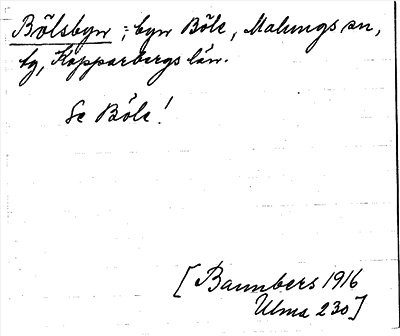 Bölsbyn ; byn Böle, Malungs sn,
tg, Kopparbergs län.
Se Böle!
[Bannbers 1916
Ulma 230]